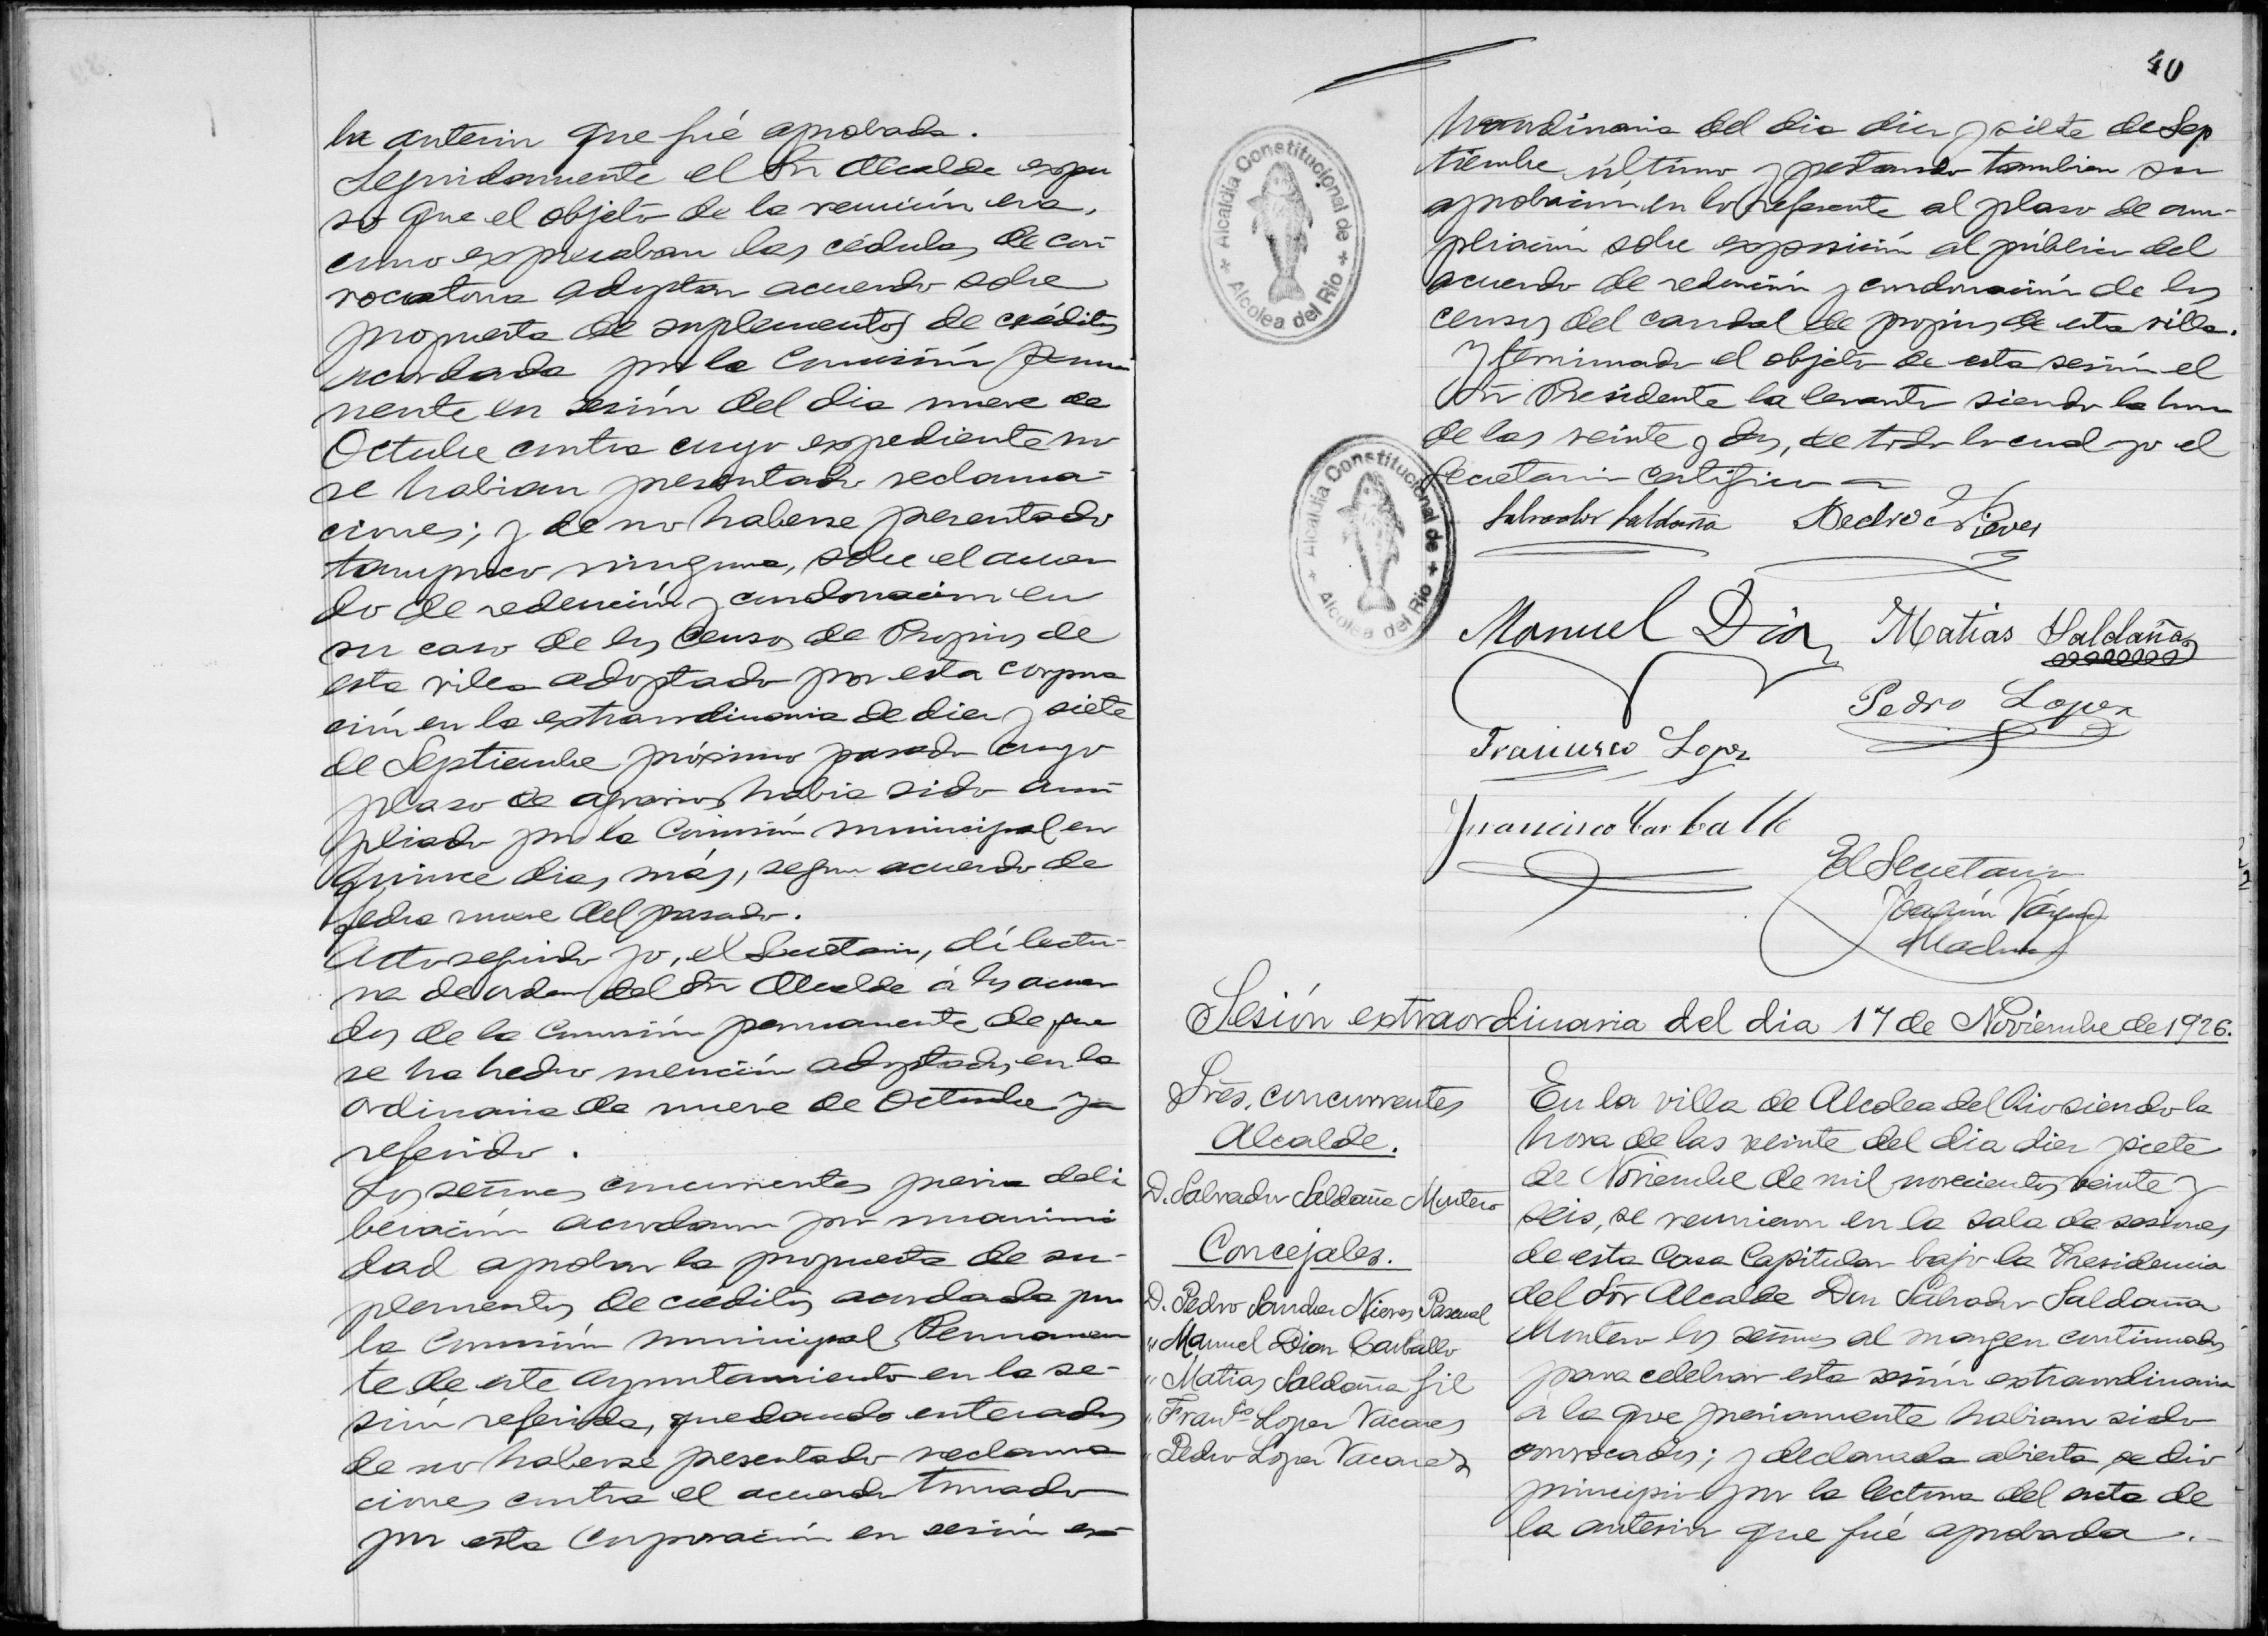 la anterior que fué aprobada.
Seguidamente el Sr Alcalde expu
so que el objeto de la reunión era,
como expresaban las cédulas de con
vocatoria adoptar acuerdo sobre
propuesta de suplementos de créditos
acordada por la Comisión perma
nente en sesión del dia nueve de
Octubre contra cuyo expediente no
se habian presentado reclama-
ciones; y de no haberse presentado
tampoco ninguna, sobre el acuer
do de redención y condonación en
su caso de los Censos de Propios de
esta villa adoptado por esta corpora
ción en la extraordinaria de diez y siete
de Septiembre próximo pasado cuyo
plaso de agravios habia sido am
pliado por la Comisión municipal en
quince dias más, segun acuerdo de
fecha nueve del pasado.
Acto seguido yo, el Secretario, dí lectu-
ra de orden del Sr Alcalde á los acuer
dos de la Comisión permanente de que
se ha hecho mención adoptados en la
ordinaria de nueve de Octubre ya
referido.
Los señores concurrentes previa deli
beración acordaron por unanimi
dad aprobar la propuesta de su-
plementos de créditos acordada por
la Comisión municipal Permanen
te de este Ayuntamiento en la se-
sión referida, quedando enterados
de no haberse presentado reclama
ciones contra el acuerdo tomado
por esta Corporación en sesión ex-
40
traordinaria del dia diez y siete de Sep
tiembre último y prestando tambien su
aprobación en lo referente al plaso de am-
pliación sobre exposición al público del
acuerdo de redención y condonación de los
censos del caudal de propios de esta villa.
Y terminado el objeto de esta sesión el
Sr Presidente la levantó siendo la hora
de las veinte y dos, de todo lo cual yo el
Secretario certifico
Alcaldia Constitucional de
Alcolea del Rio
Alcaldia Constitucional de
Alcolea del Rio
Salvador Saldaña Pedro S Nieves
Manuel Diaz Matias Saldaña
Pedro Lopez
Francisco Lopez
Francisco Carballo
El Secretario
Joaquín Vázquez
Sesión extraordinaria del dia 17 de Noviembre de 1926.
Srēs. concurrentes
Alcalde.
D. Salvador Saldaña Montero
Concejales.
D. Pedro Sanchez Nieves Pascual
" Manuel Diaz Carballo
" Matias Saldaña Gil
" Franco Lopez Vacares
" Pedro Lopez Vacares
En la villa de Alcolea del Rio siendo la
hora de las veinte del dia diez y siete
de Noviembre de mil novecientos veinte y
seis, se reunieron en la sala de sesiones
de esta Casa Capitular bajo la Presidencia
del Sor Alcalde Don Salvador Saldaña
Montero los señores al margen continuados
para celebrar esta sesión extraordinaria
á la que previamente habian sido
convocados; y declarada abierta se dió
principio por la lectura del acta de
la anterior que fué aprobada.-